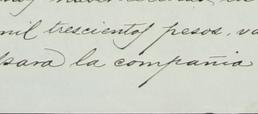 mil trescientos pesos, va
para la compañia